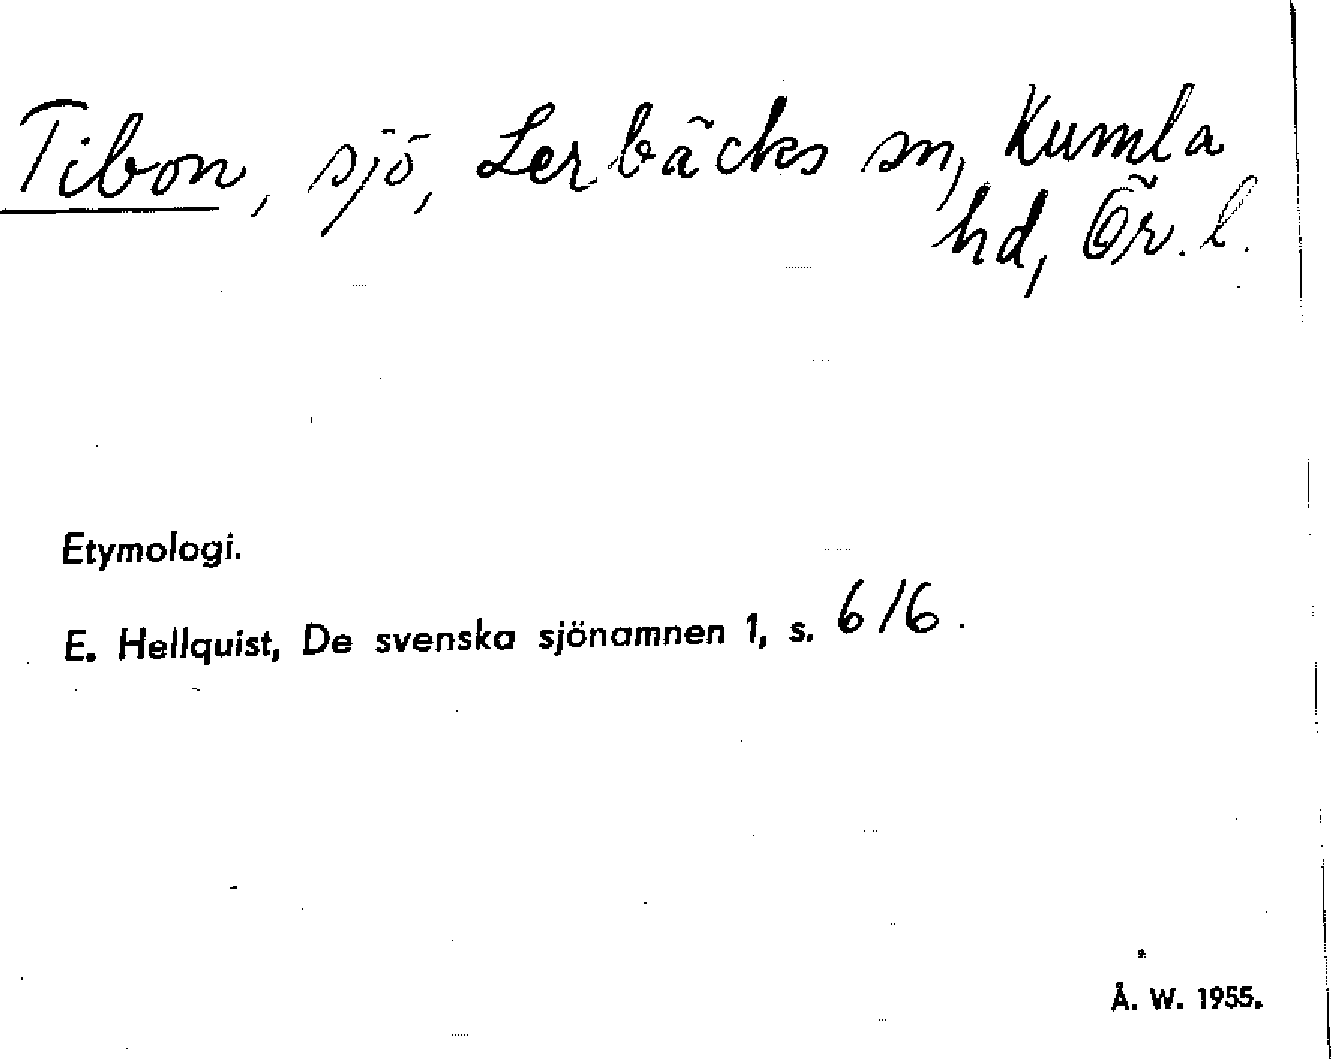 Tibon, sjö, Lerbäcks sn, Kumla
hd, Ör. l.
Etymologi.
E. Hellquist, De svenska sjönamnen 1, s. 616.
Å. W. 1955.